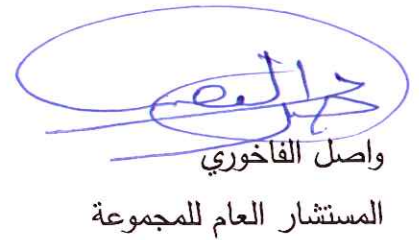 واصل الفاخوري
المستشار العام للمجموعة